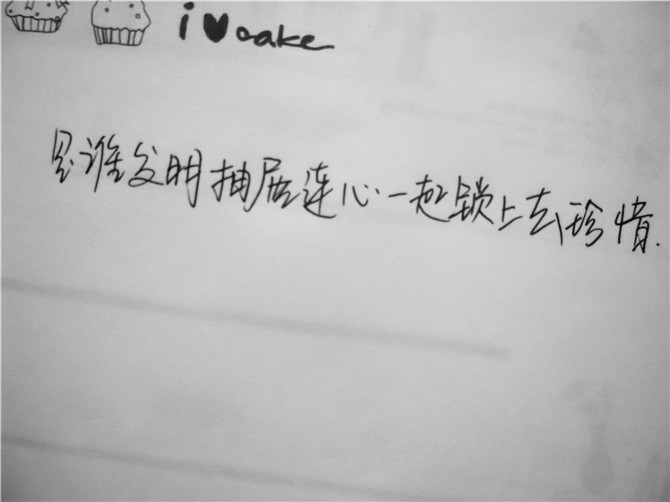 i ♥ cake
是谁发明抽屉连心一起锁上去珍惜.